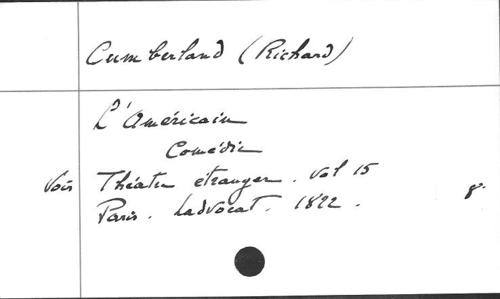 Cumberland (Richard)
L'Américain
Comédie
Voir Théâtre étranger. vol 15
Paris. Ladvocat. 1822. 8°.